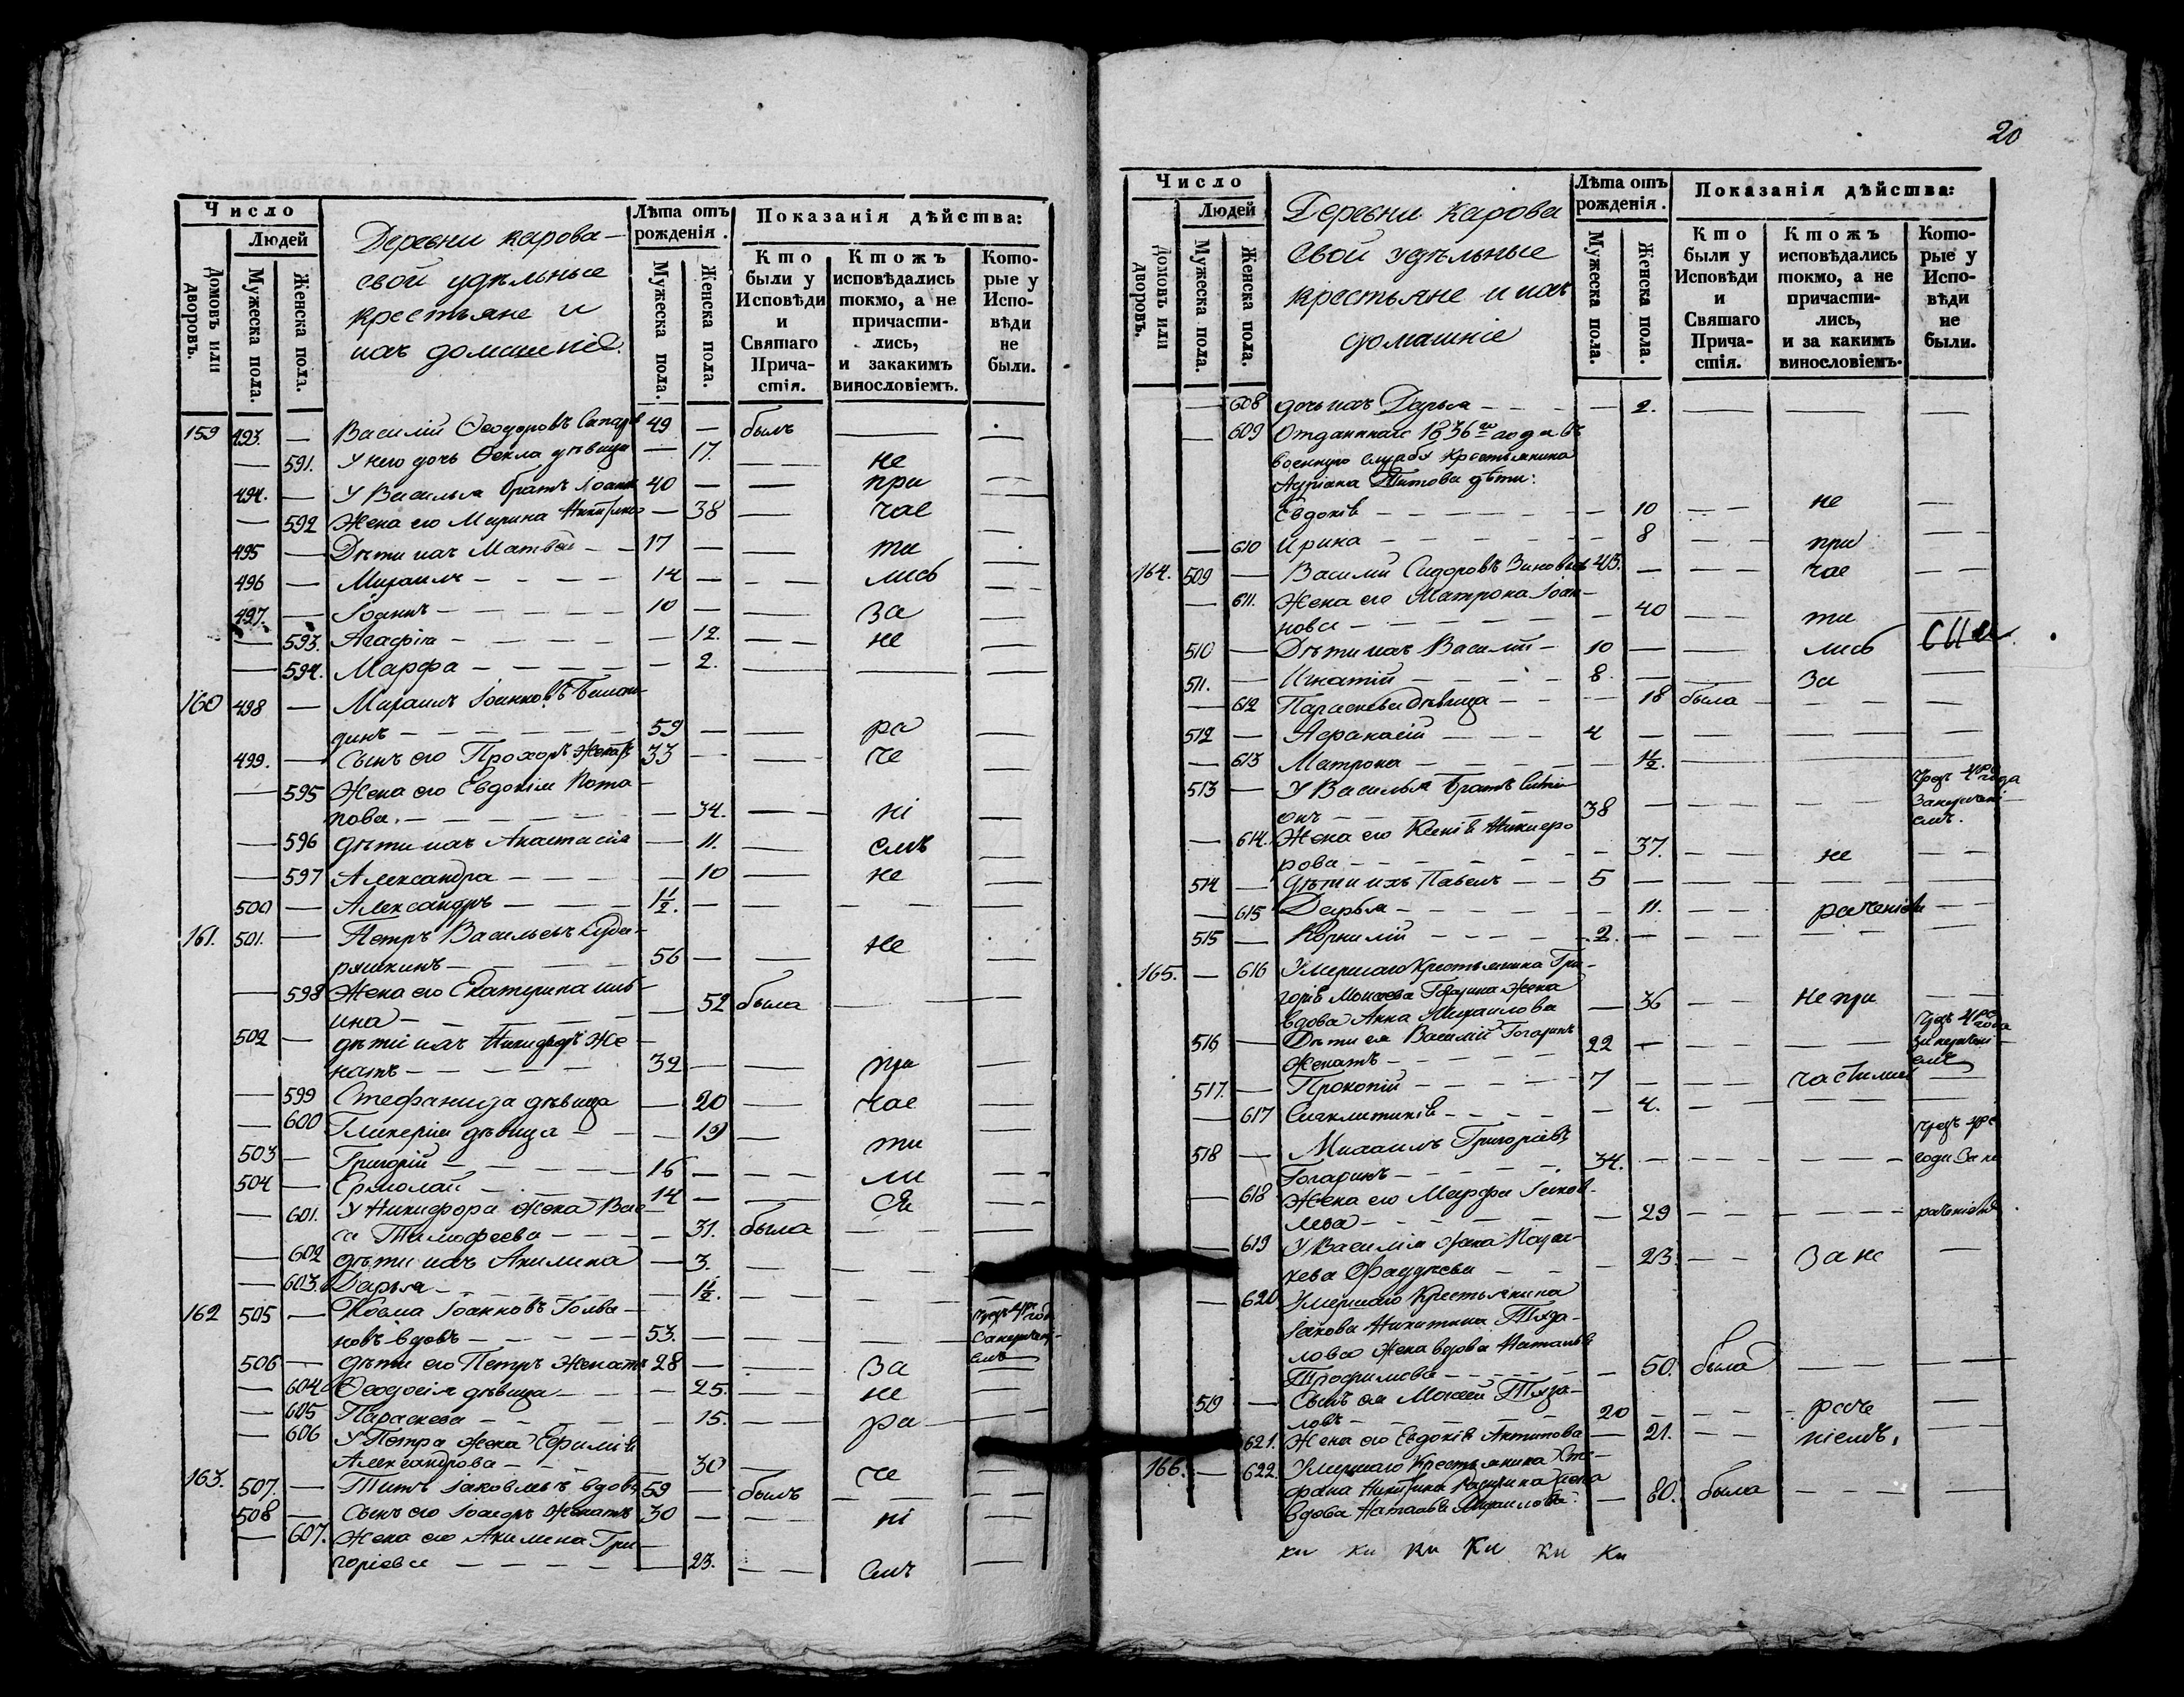 Число
Людей
Домовъ или дворовъ.
Мужеска пола.
Женска пола.
Деревни карова-
свой удѣльные
крестьяне и
ихъ домашніе.
Лѣта отъ рожденія.
Мужеска пола.
Женска пола.
Показанія дѣйства:
Кто были у Исповѣди и Святаго Прича-стія.
Ктожъ исповѣдались токмо, а не причасти-лись, и закакимъ винословіемъ.
Кото-рые у Испо-вѣди не были.
159 493. — Василій Ѳеодоровъ 49 — былъ
— 591. У него дочь Ѳекла дѣвица — 17. не
494. — У Василья братъ Іоаннъ 40 — при
— 592 Жена его Марина — 38 — час
495 — Дѣти ихъ Матвей — 17 — ти
496 — Михаилъ — 14 — лись
497. — Іоаннъ — 10 — за
— 593. Агафія — 12. не
— 594. Марфа — 2.
160 498 — Михаилъ Іоанновъ
динъ — 59 — ра
499. — Сынъ его Прохоръ женатъ 33 — че
— 595 Жена его Евдокія Пота-
пова. — 34. — ні
— 596 дѣти ихъ Анастасія — 11. — емъ
— 597 Александра — 10 — не
500 — Александръ — 1½.
161. 501. — Петръ Васильевъ Кудо-
ряшкинъ — 56 — не
— 598 Жена его Екатерина Иль-
ина — 52 была
502 — дѣти ихъ Никифоръ же-
натъ — 32 — при
— 599 Стефанида дѣвица — 20 — час
— 600 Гликерія дѣвица — 19 —
503 — Григорій — 16 — ти
504 — Ермолай — 14 — ли
— 601. У Никифора жена Вас-
са Тимофеева — 31. была
— 602 дѣти ихъ Акилина — 3.
— 603. Дарья — 1½.
162 505 — Козма Іоанновъ Голова-
новъ вдовъ — 53.
506 — дѣти его Петръ женатъ 28 — за
— 604 Ѳеодосія дѣвица — 25. — не
— 605 Параскева — 15. — ра
— 606 У Петра жена Ефимія
Александрова — 30 — че
163. 507. — Титъ Іаковлевъ вдовъ 59 — былъ
508 — Сынъ его женатъ 30 — ні
— 607. Жена его Акилина Гри-
горіева — 23. — емъ
20
Число
Людей
Домовъ или дворовъ.
Мужеска пола.
Женска пола.
Деревни карова
свой удѣльные
крестьяне и ихъ
домашніе
Лѣта отъ рожденія.
Мужеска пола.
Женска пола.
Показанія дѣйства:
Кто были у Исповѣди и Святаго Прича-стія.
Ктожъ исповѣдались токмо, а не причасти-лись, и за какимъ винословіемъ.
Кото-рые у Испо-вѣди не были.
— 608 дочь ихъ Дарья — 2.
— 609 Отданнаго 1836го года въ
военную службу крестьянина
Адріана Титова дѣти:
Евдокія — 10 — не
— 610 Ирина — 8 — при
164. 509 — Василій Сидоровъ Зиновьевъ 43. — час
— 611. Жена его Матрона Іоан-
нова — 40 — ти
510 — Дѣти ихъ Василій — 10 — лись
511. — Игнатій — 8. — за
— 612 Параскева дѣвица — 18 была
512 — Афанасій — 4
— 613 Матрона — 1½.
513 — У Василья братъ Симе-
онъ — 38
— 614. Жена его Ксенія Никифо-
рова — 37. — не
514 — дѣти ихъ Павелъ — 5
— 615 Дарья — 11. — раченіем
515 — Корнилій — 2.
165. — 616 Умершаго крестьянина Гри-
горія Моисеева Гогарина жена
вдова Анна Михаилова — 36 — не при
516 — Дѣти ея Василій Гогаринъ
женатъ — 22
517. — Прокопій — 7 — частились
— 617 Синклитикія — 4.
518 — Михаилъ Григорьевъ
Гогаринъ — 34. — годи за не
— 618 Жена его Марфа Іаков-
лева — 29 — раченіемъ
— 619 У Василія жена Парас-
кева Фаддѣева — 23. — за не
— 620 Умершаго крестьянина
Іакова Никитина Тяга-
лова жена вдова Наталья
Трофимова — 50. была
519 — Сынъ ея Моисей Тяга-
ловъ — 20 — раче
— 621. Жена его Евдокія Антипова — 21. — ніемъ.
166. — 622. Умершаго крестьянина Сте-
фана жена
вдова Наталья Михаилова — 80. была
ки ки ки ки ки ки